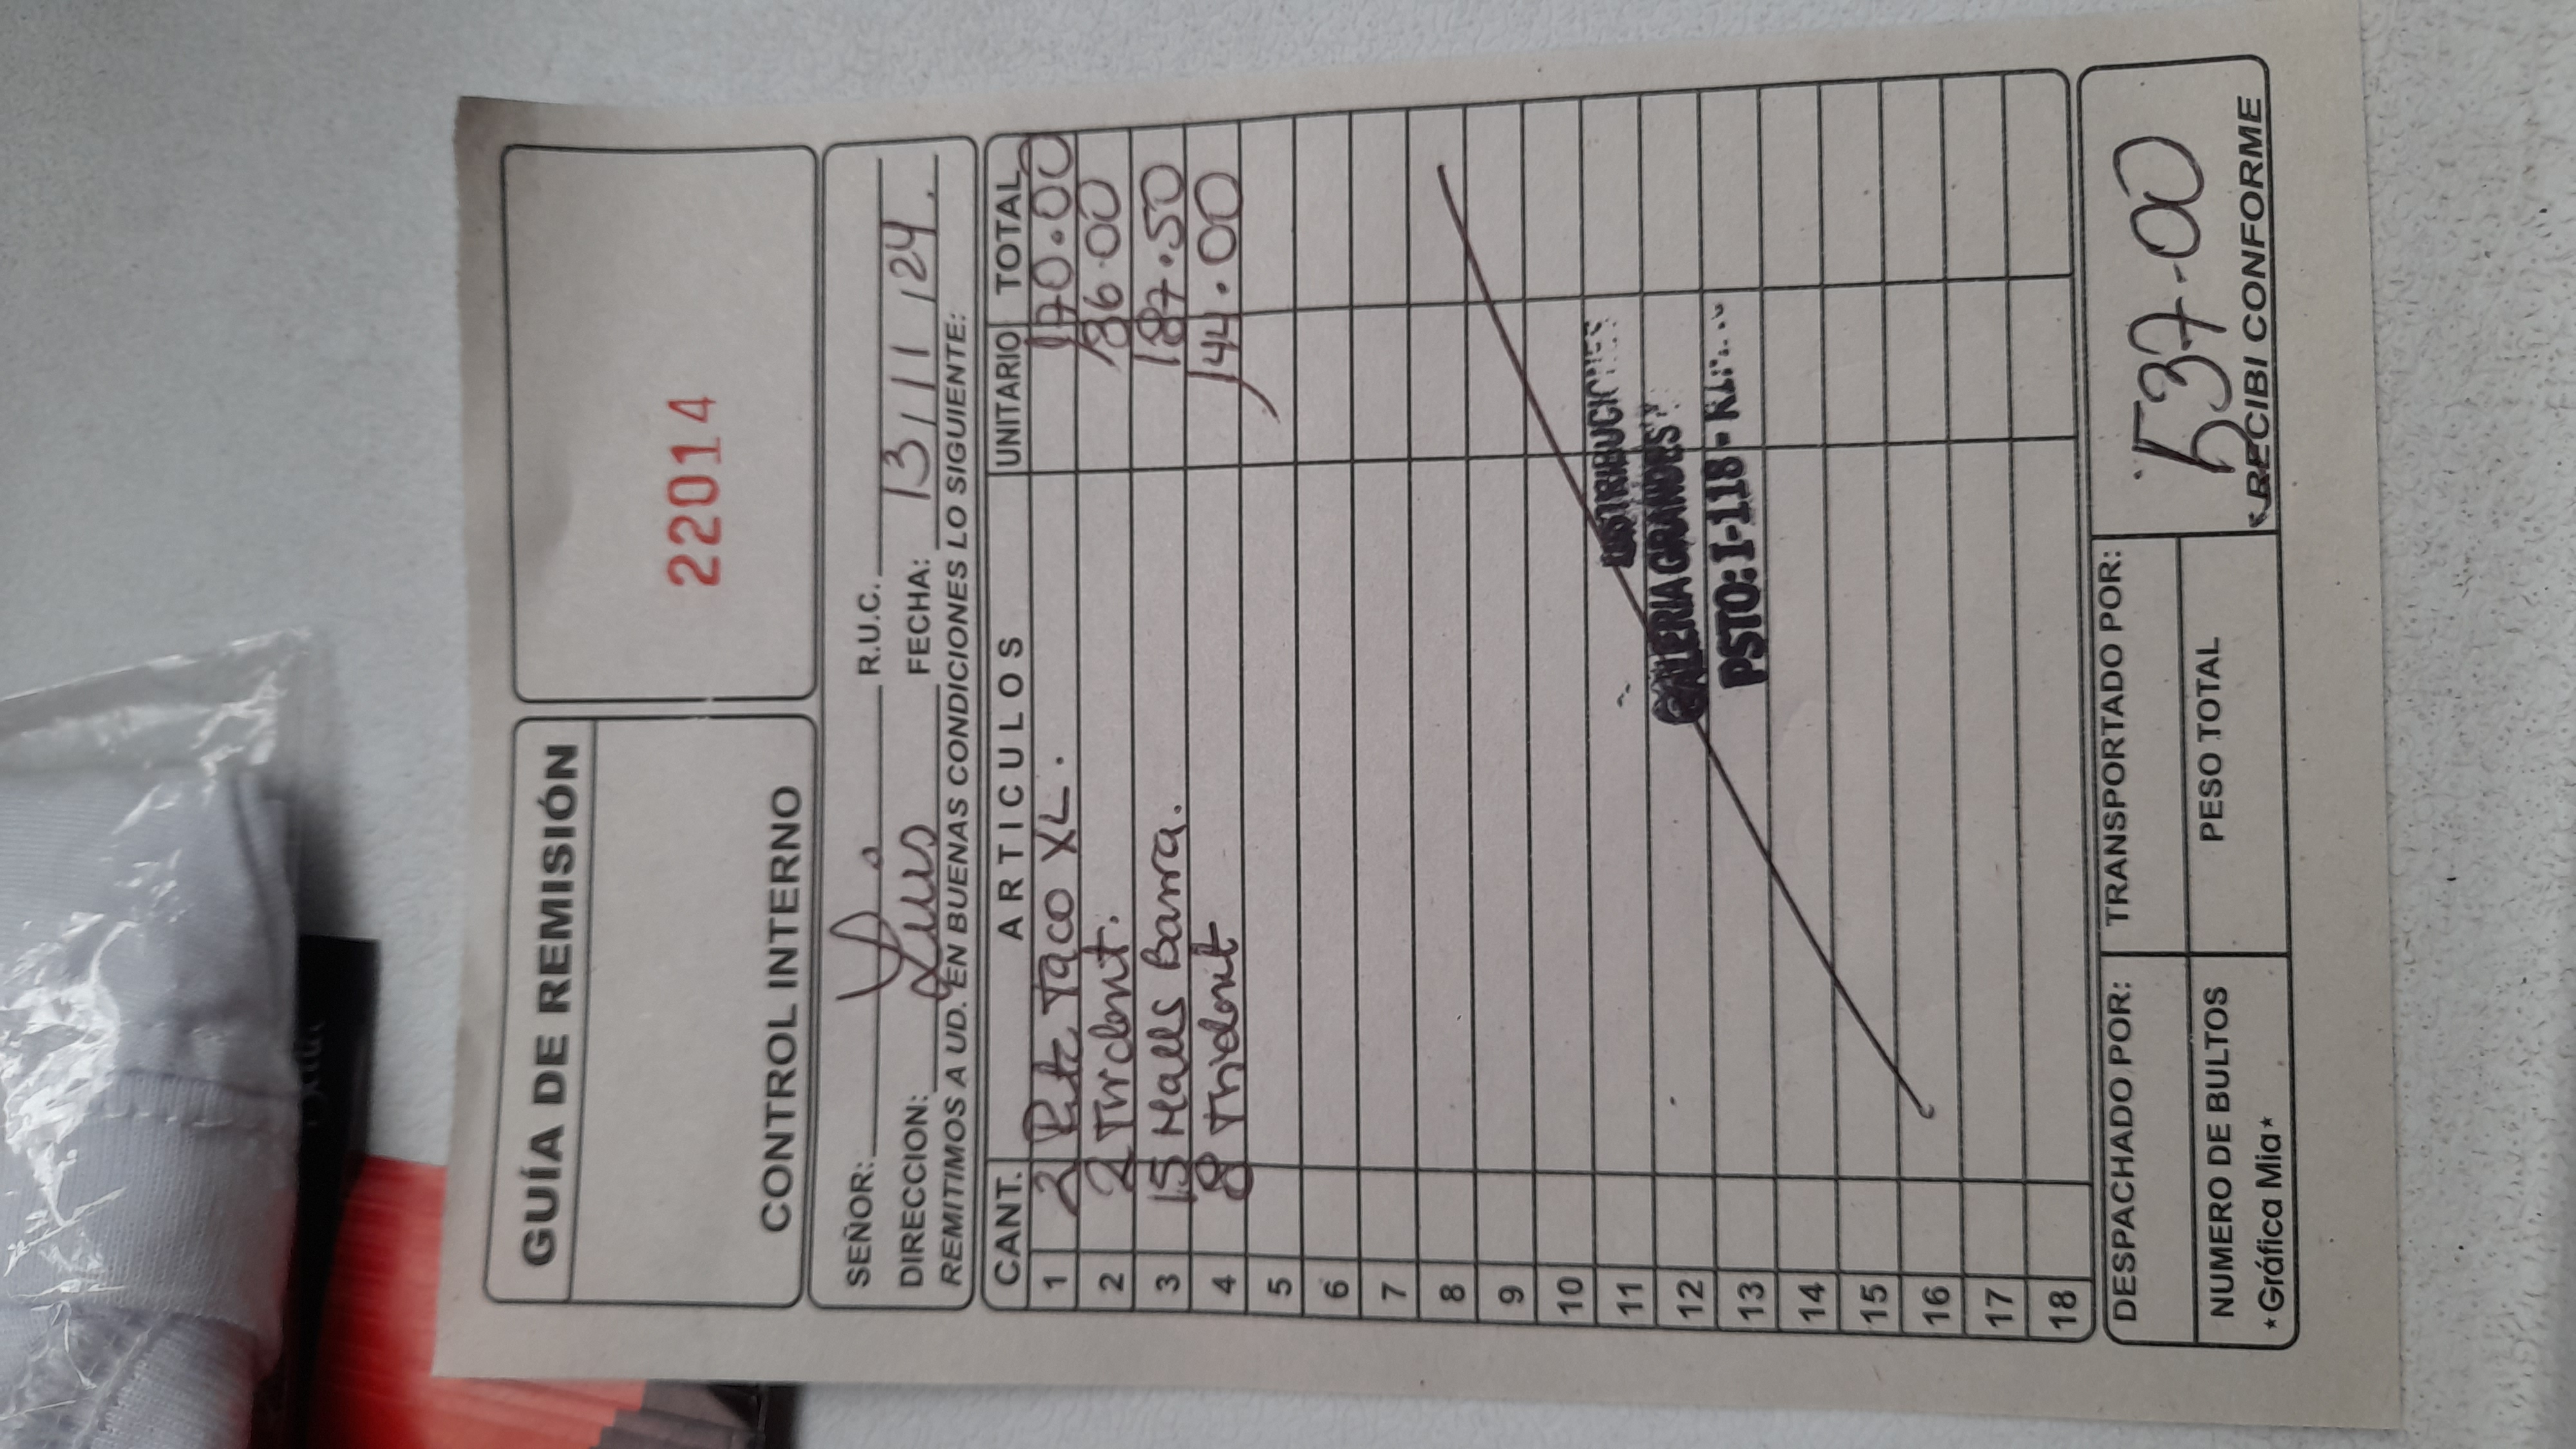 GUÍA DE REMISIÓN
CONTROL INTERNO
22014
SEÑOR: R.U.C.
DIRECCION: Luis FECHA: 13/11/24.
REMITIMOS A UD. EN BUENAS CONDICIONES LO SIGUIENTE:
CANT. ARTICULOS UNITARIO TOTAL
1 2 Ritz Taco XL. 170.00
2 2 Trident. 36.00
3 15 Halls Barra. 187.50
4 8 Trident 144.00
5
6
7
8
9
10
11 DISTRIBUCIONES
12 GALERIA GRANDES
13 PSTO: I-118 -
14
15
16
17
18
DESPACHADO POR: TRANSPORTADO POR:
537-00
NUMERO DE BULTOS PESO TOTAL
*Gráfica Mia* RECIBI CONFORME